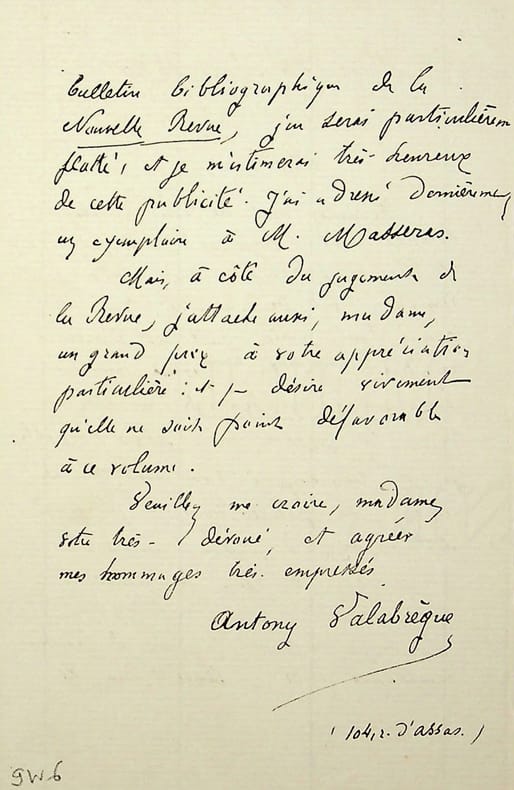 bulletin bibliographique de la
Nouvelle Revue, j'en serai particulièrem
flatté, et je m'estimerai très-heureux
de cette publicité. J'ai adressé dernièrement
un exemplaire à M. Masseras.
Mais, à côté du jugement de
la Revue, j'attache aussi, madame,
un grand prix à votre appréciation
particulière : et je désire vivement
qu'elle ne soit point défavorable
à ce volume.
Veuillez me croire, madame,
votre très-dévoué, et agréer
mes hommages très-empressés
Antony Valabrègue
(104, r. d'Assas.)
9W6